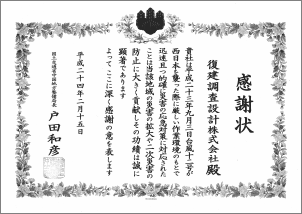 感謝状
復建調査設計株式会社殿
貴社は平成二十三年九月三日台風十二号が
西日本を襲った際に厳しい作業環境のもとで
迅速且つ的確に災害の応急対策に対応された
ことは当該地域の災害の拡大や二次災害の
防止に大きく貢献しその功績は誠に
顕著であります
よってここに深く感謝の意を表します
平成二十四年二月十五日
国土交通省中国地方整備局長
戸田和彦